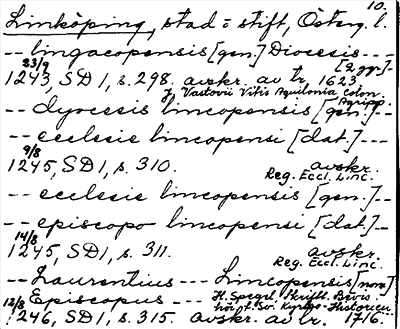 10.
Linköping, stad = stift, Österg. l.
-- lingacopensis [gen.] Diocesis ---
23/9 [2 ggr] --
1243, SD 1, s. 298. avskr. av tr. 1623
J. Vastovii Vitis Aquilonia Colon. Agripp.
-- dyocesis lincopensis [gen.] --
-- ecclesie lincopensi [dat.] --
9/8
1245, SD 1, s. 310. avskr.
Reg. Eccl. Linc.
-- ecclesie lincopensis [gen.] --
-- episcopo lincopensi [dat.] --
14/8
1245, SD 1, s. 311. avskr.
Reg. Eccl. Linc.
-- Laurentius --- Lincopensis [nom.]
12/8 Episcopus --- H. Spegel, Skriftl. Bevis
hörf. t. Sv. Kyrko-Historien
1246, SD 1, s. 315. avskr. av tr. 1716.